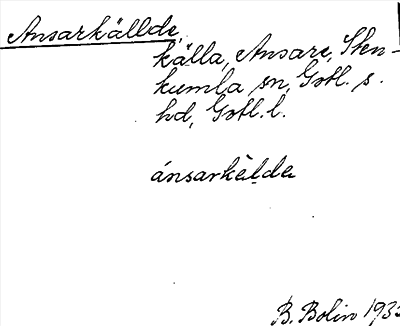 Ansarkällde,
källa, Ansare, Sten-
kumla sn, Gotl. s.
hd, Gotl. l.
ánsarkèlde
B. Bolin 193